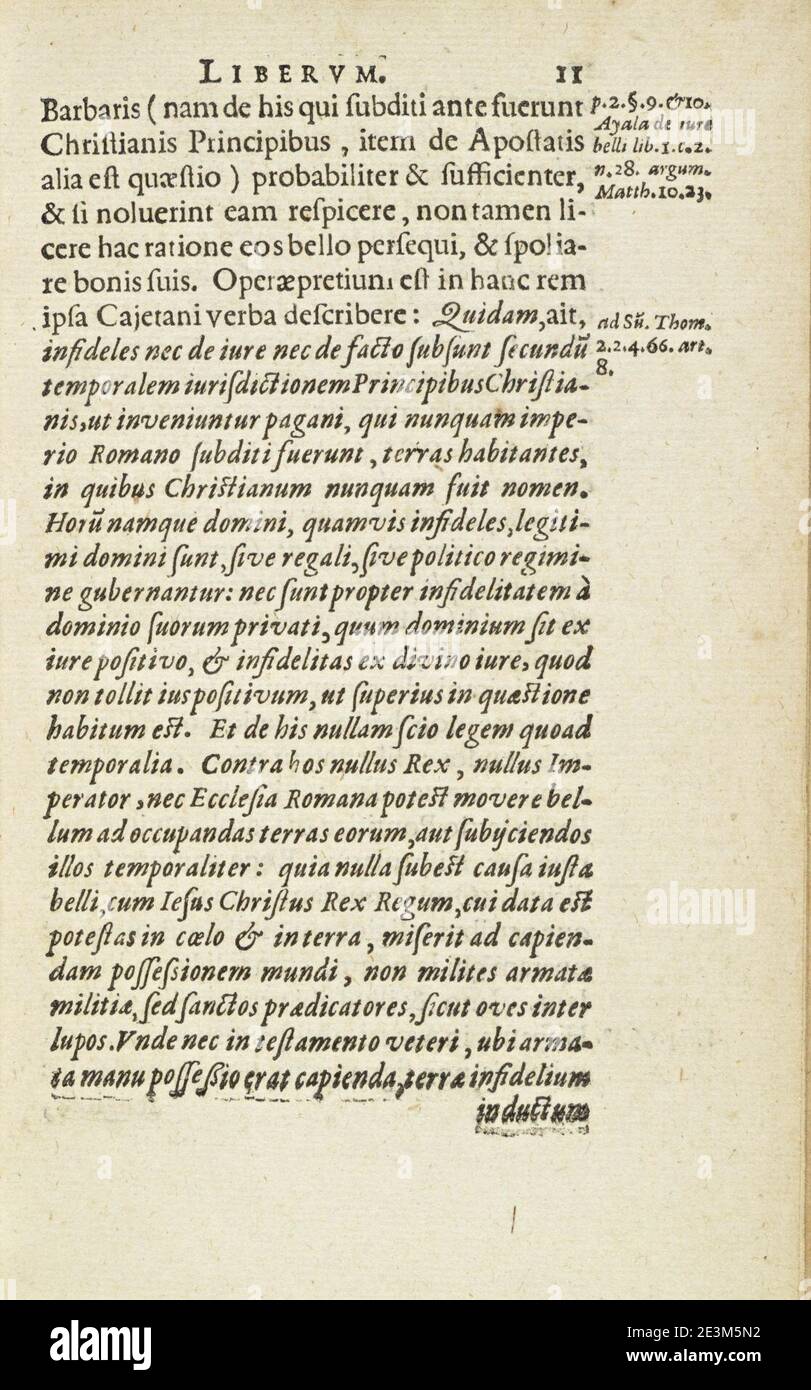 LIBERVM. 11
Barbaris ( nam de his qui ſubditi ante fuerunt
Chriſtianis Principibus , item de Apoſtatis
alia eſt quæſtio ) probabiliter & ſufficienter,
& ſi noluerint eam reſpicere , non tamen li-
cere hac ratione eos bello perſequi, & ſpolia-
re bonis ſuis. Operæpretium eſt in hanc rem
ipſa Cajetani verba deſcribere : Quidam, ait,
infideles nec de iure nec de facto ſubſunt ſecundū
temporalem iuriſdictionem Principibus Chriſtia-
nis, ut inveniuntur pagani, qui nunquam impe-
rio Romano ſubditi fuerunt , terras habitantes,
in quibus Chriſtianum nunquam fuit nomen.
Horū namque domini, quamvis infideles, legiti-
mi domini ſunt, ſive regali, ſive politico regimi-
ne gubernantur: nec ſunt propter infidelitatem à
dominio ſuorum privati, quum dominium ſit ex
iure poſitivo, & infidelitas ex divino iure, quod
non tollit ius poſitivum, ut ſuperius in quæſtione
habitum eſt. Et de his nullam ſcio legem quoad
temporalia. Contra hos nullus Rex , nullus Im-
perator, nec Eccleſia Romana poteſt movere bel-
lum ad occupandas terras eorum, aut ſubijciendos
illos temporaliter : quia nulla ſubeſt cauſa iuſta
belli, cum Ieſus Chriſtus Rex Regum, cui data eſt
poteſtas in cœlo & in terra , miſerit ad capien-
dam poſſeſsionem mundi , non milites armatæ
militiæ, ſed ſanctos prædicatores, ſicut oves inter
lupos. Vnde nec in teſtamento veteri , ubi arma-
ta manu poſſeſsio erat capienda, terræ infidelium
inductum
p. 2. §. 9. & 10.
Ayala de iure
belli lib. 1. c. 2.
n. 28. argum.
Matth. 10. 23.
ad Sū. Thom.
2. 2. 4. 66. art.
8.
alamy
alamy
Image ID: 2E3M5N2
www.alamy.com